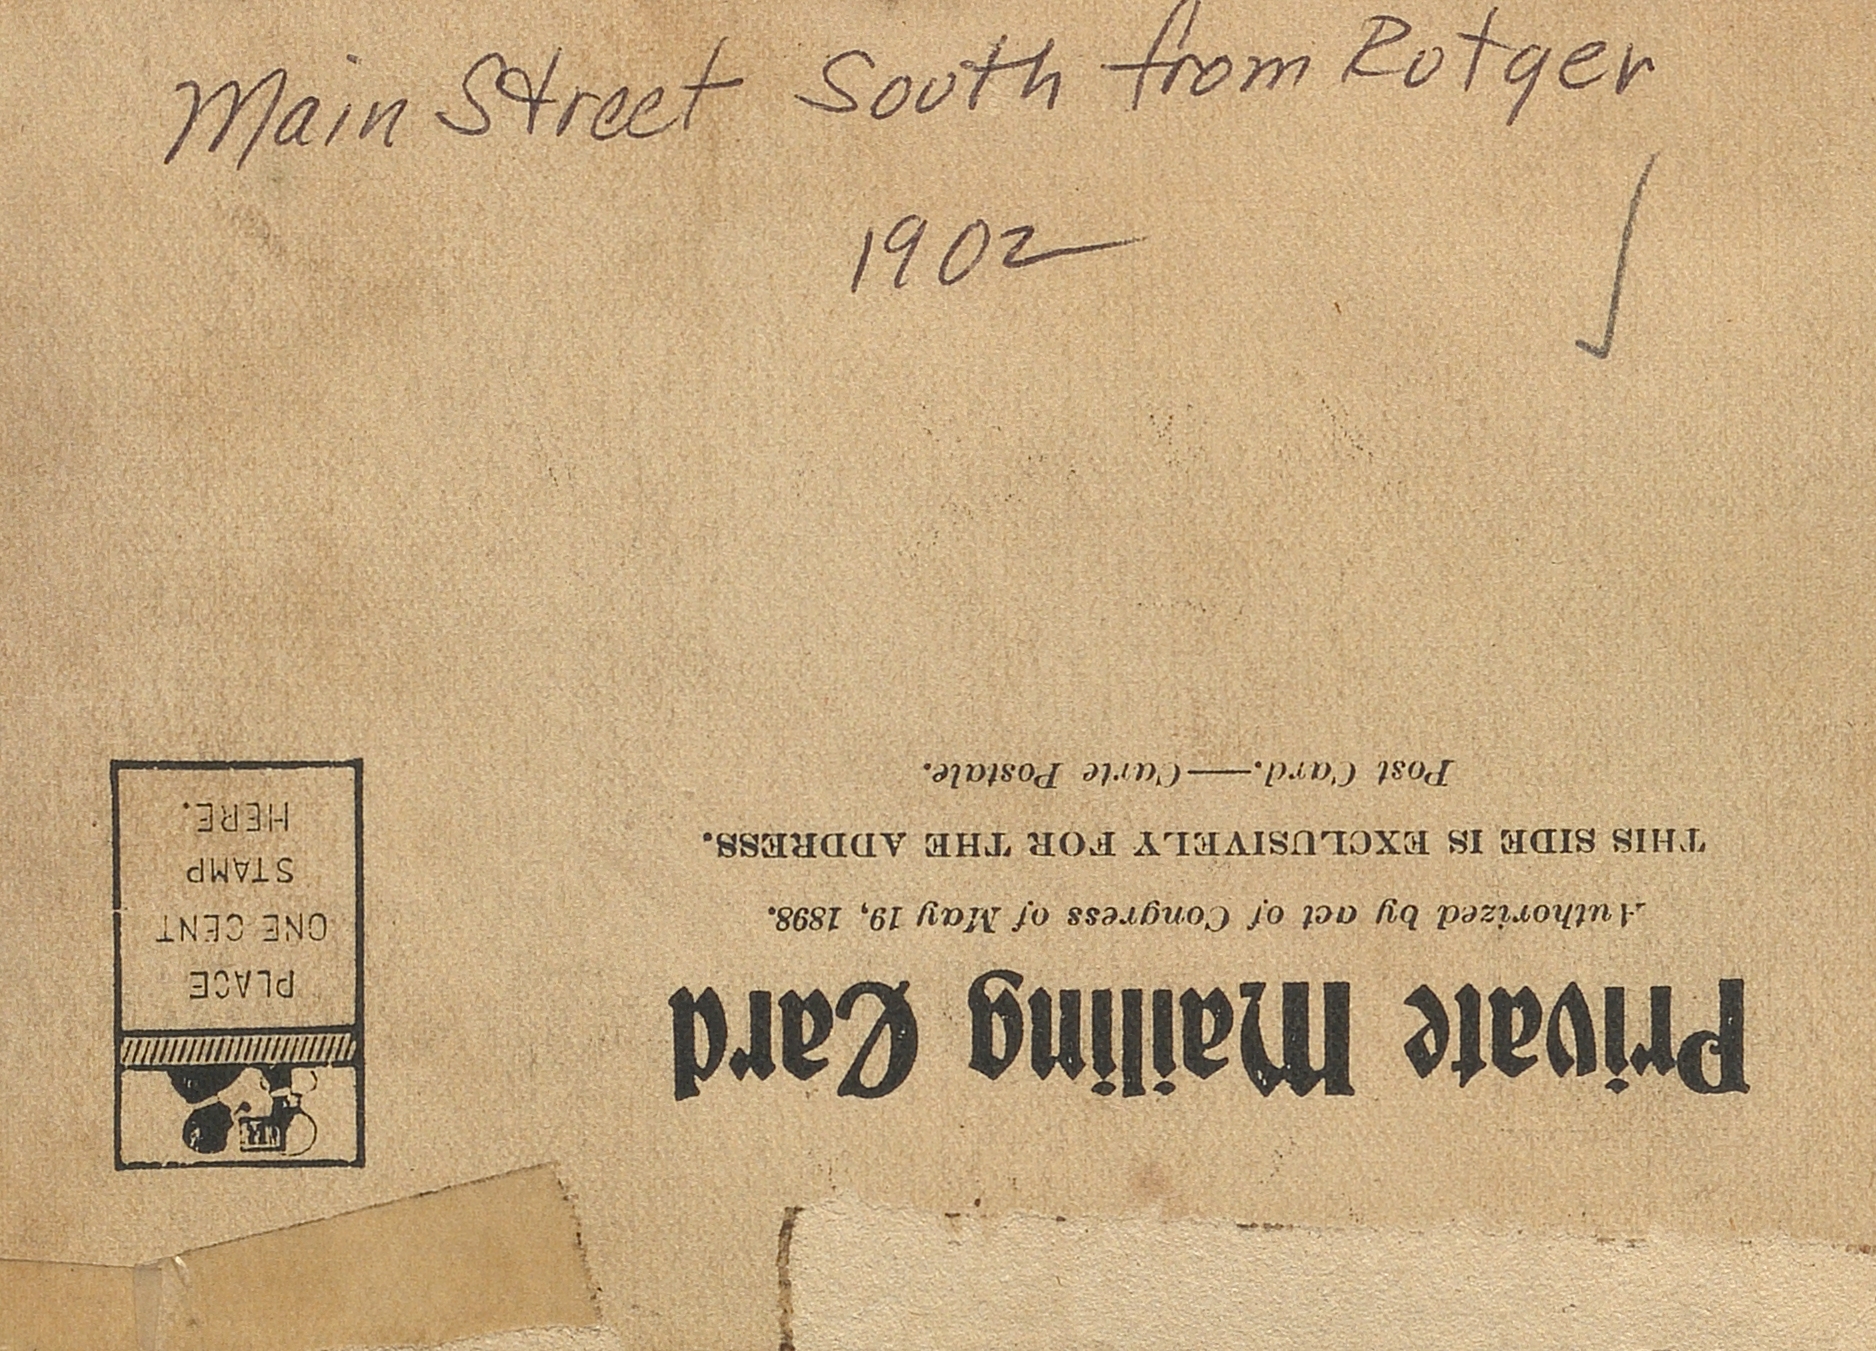 Main Street South from Rutger
1902
Private Mailing Card
Authorized by act of Congress of May 19, 1898.
THIS SIDE IS EXCLUSIVELY FOR THE ADDRESS.
Post Card.—Carte Postale.
PLACE
ONE CENT
STAMP
HERE.